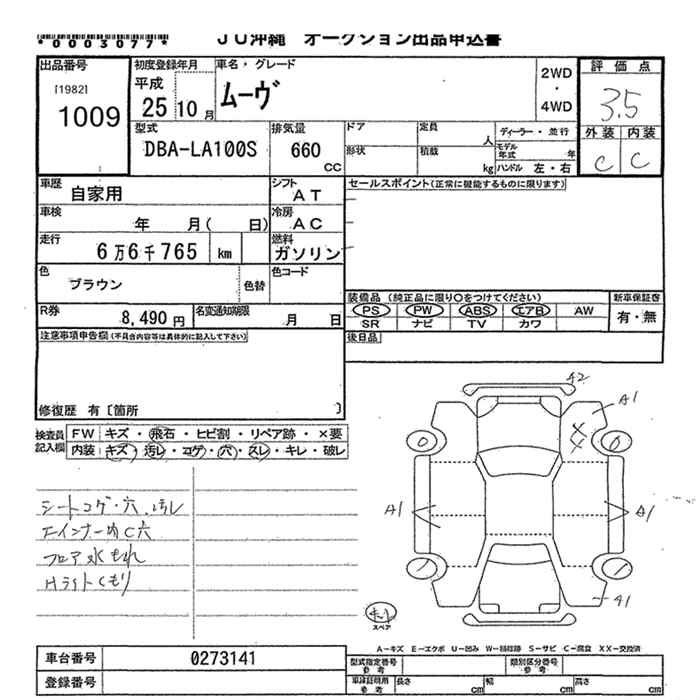 *0003077*
JU沖縄 オークション出品申込書
出品番号
[1982]
1009
初度登録年月
平成
25 10 月
車名・グレード
ムーヴ
2WD
・
4WD
評価点
3.5
外装 内装
C C
型式
DBA-LA100S
排気量
660
CC
ドア
形状
定員
人
積載
kg
ディーラー・並行
モデル年式 年
ハンドル 左・右
車歴
自家用
シフト
AT
セールスポイント(正常に機能するものに限ります)
車検
年 月( 日)
冷房
AC
走行
6万6千765 km
燃料
ガソリン
色
ブラウン
色替
色コード
R券
8,490 円
名変通知期限
月 日
装備品 (純正品に限り○をつけてください)
PS PW ABS エアB AW
SR ナビ TV カワ
新車保証書
有・無
後日品
注意事項申告欄(不具合内容等は具体的に記入して下さい)
修復歴 有〔箇所 〕
検査員記入欄
FW キズ・飛石・ヒビ割・リペア跡・×要
内装 キズ・汚レ・コゲ・穴・スレ・キレ・破レ
シートコゲ・穴.汚レ
フロア水もれ
Hライトくもり
A2
A1
A1
A1
A1
スペア
A-キズ E-エクボ U-凹み W-補修跡 S-サビ C-腐食 XX-交換済
車台番号 0273141
登録番号
型式指定番号
参考
類別区分番号
参考
車庫証明用
参考
長さ cm 幅 cm 高さ cm